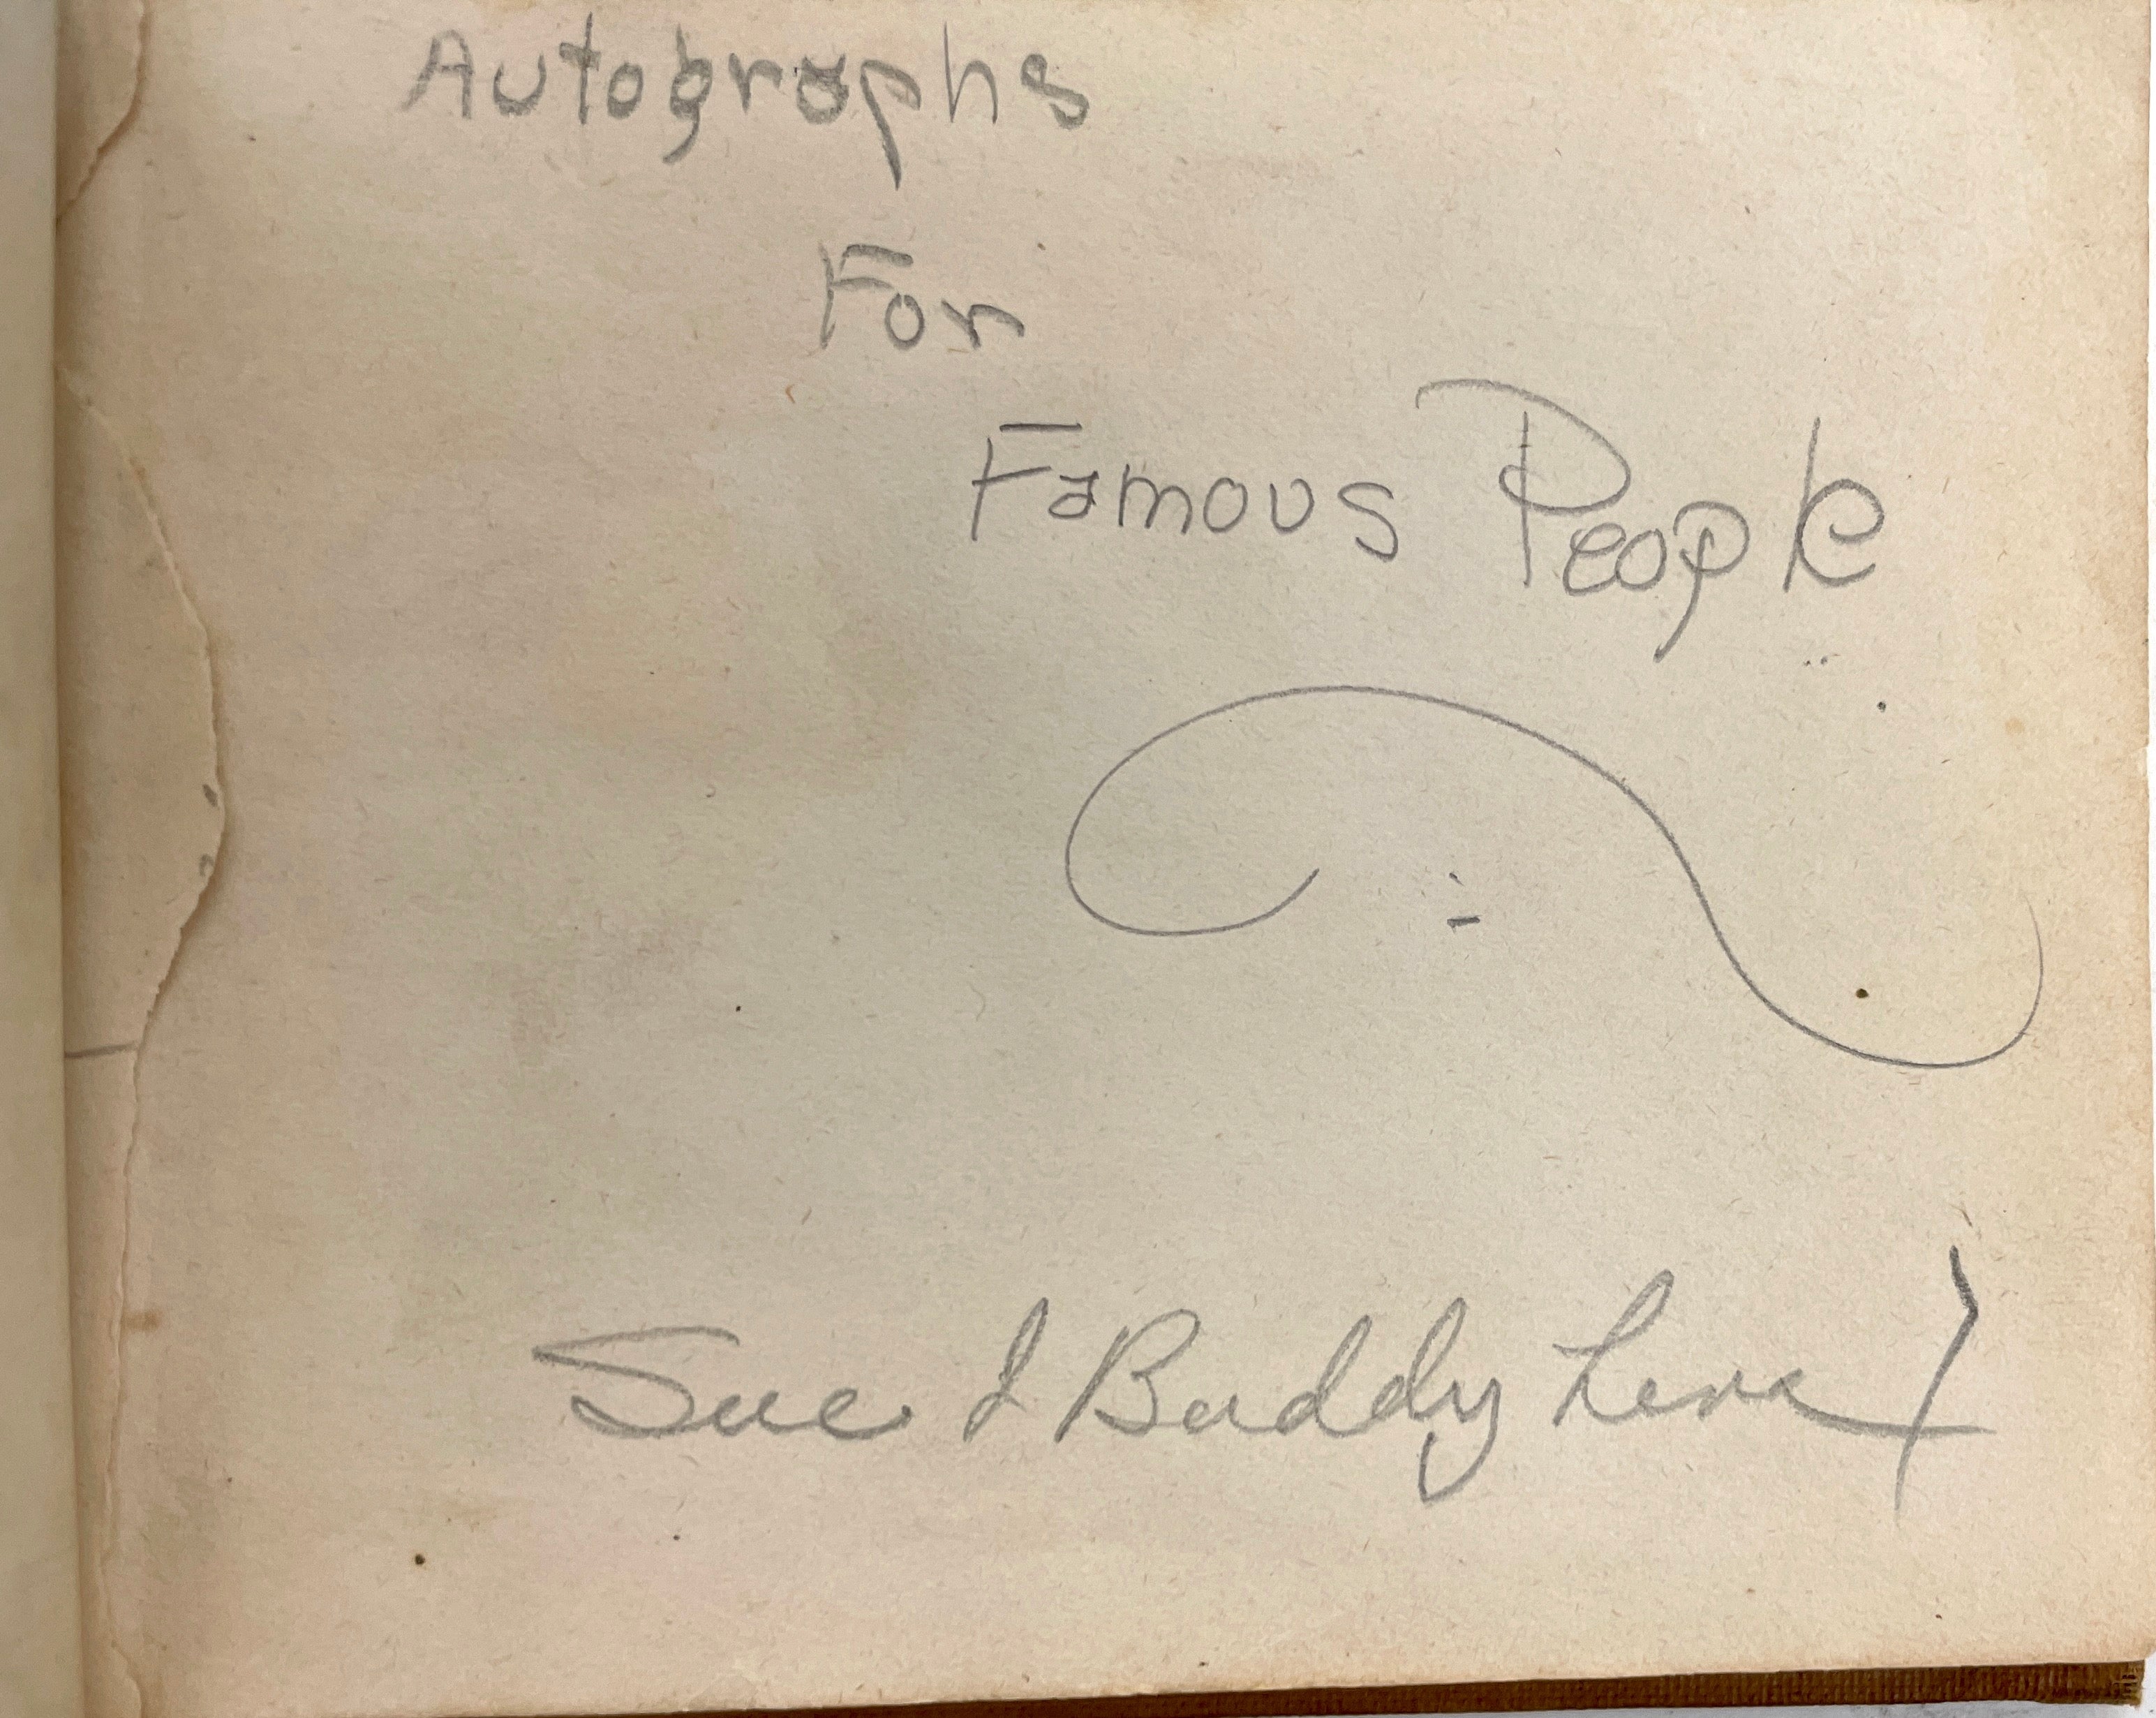 Autographs
For
Famous People
Sue & Buddy